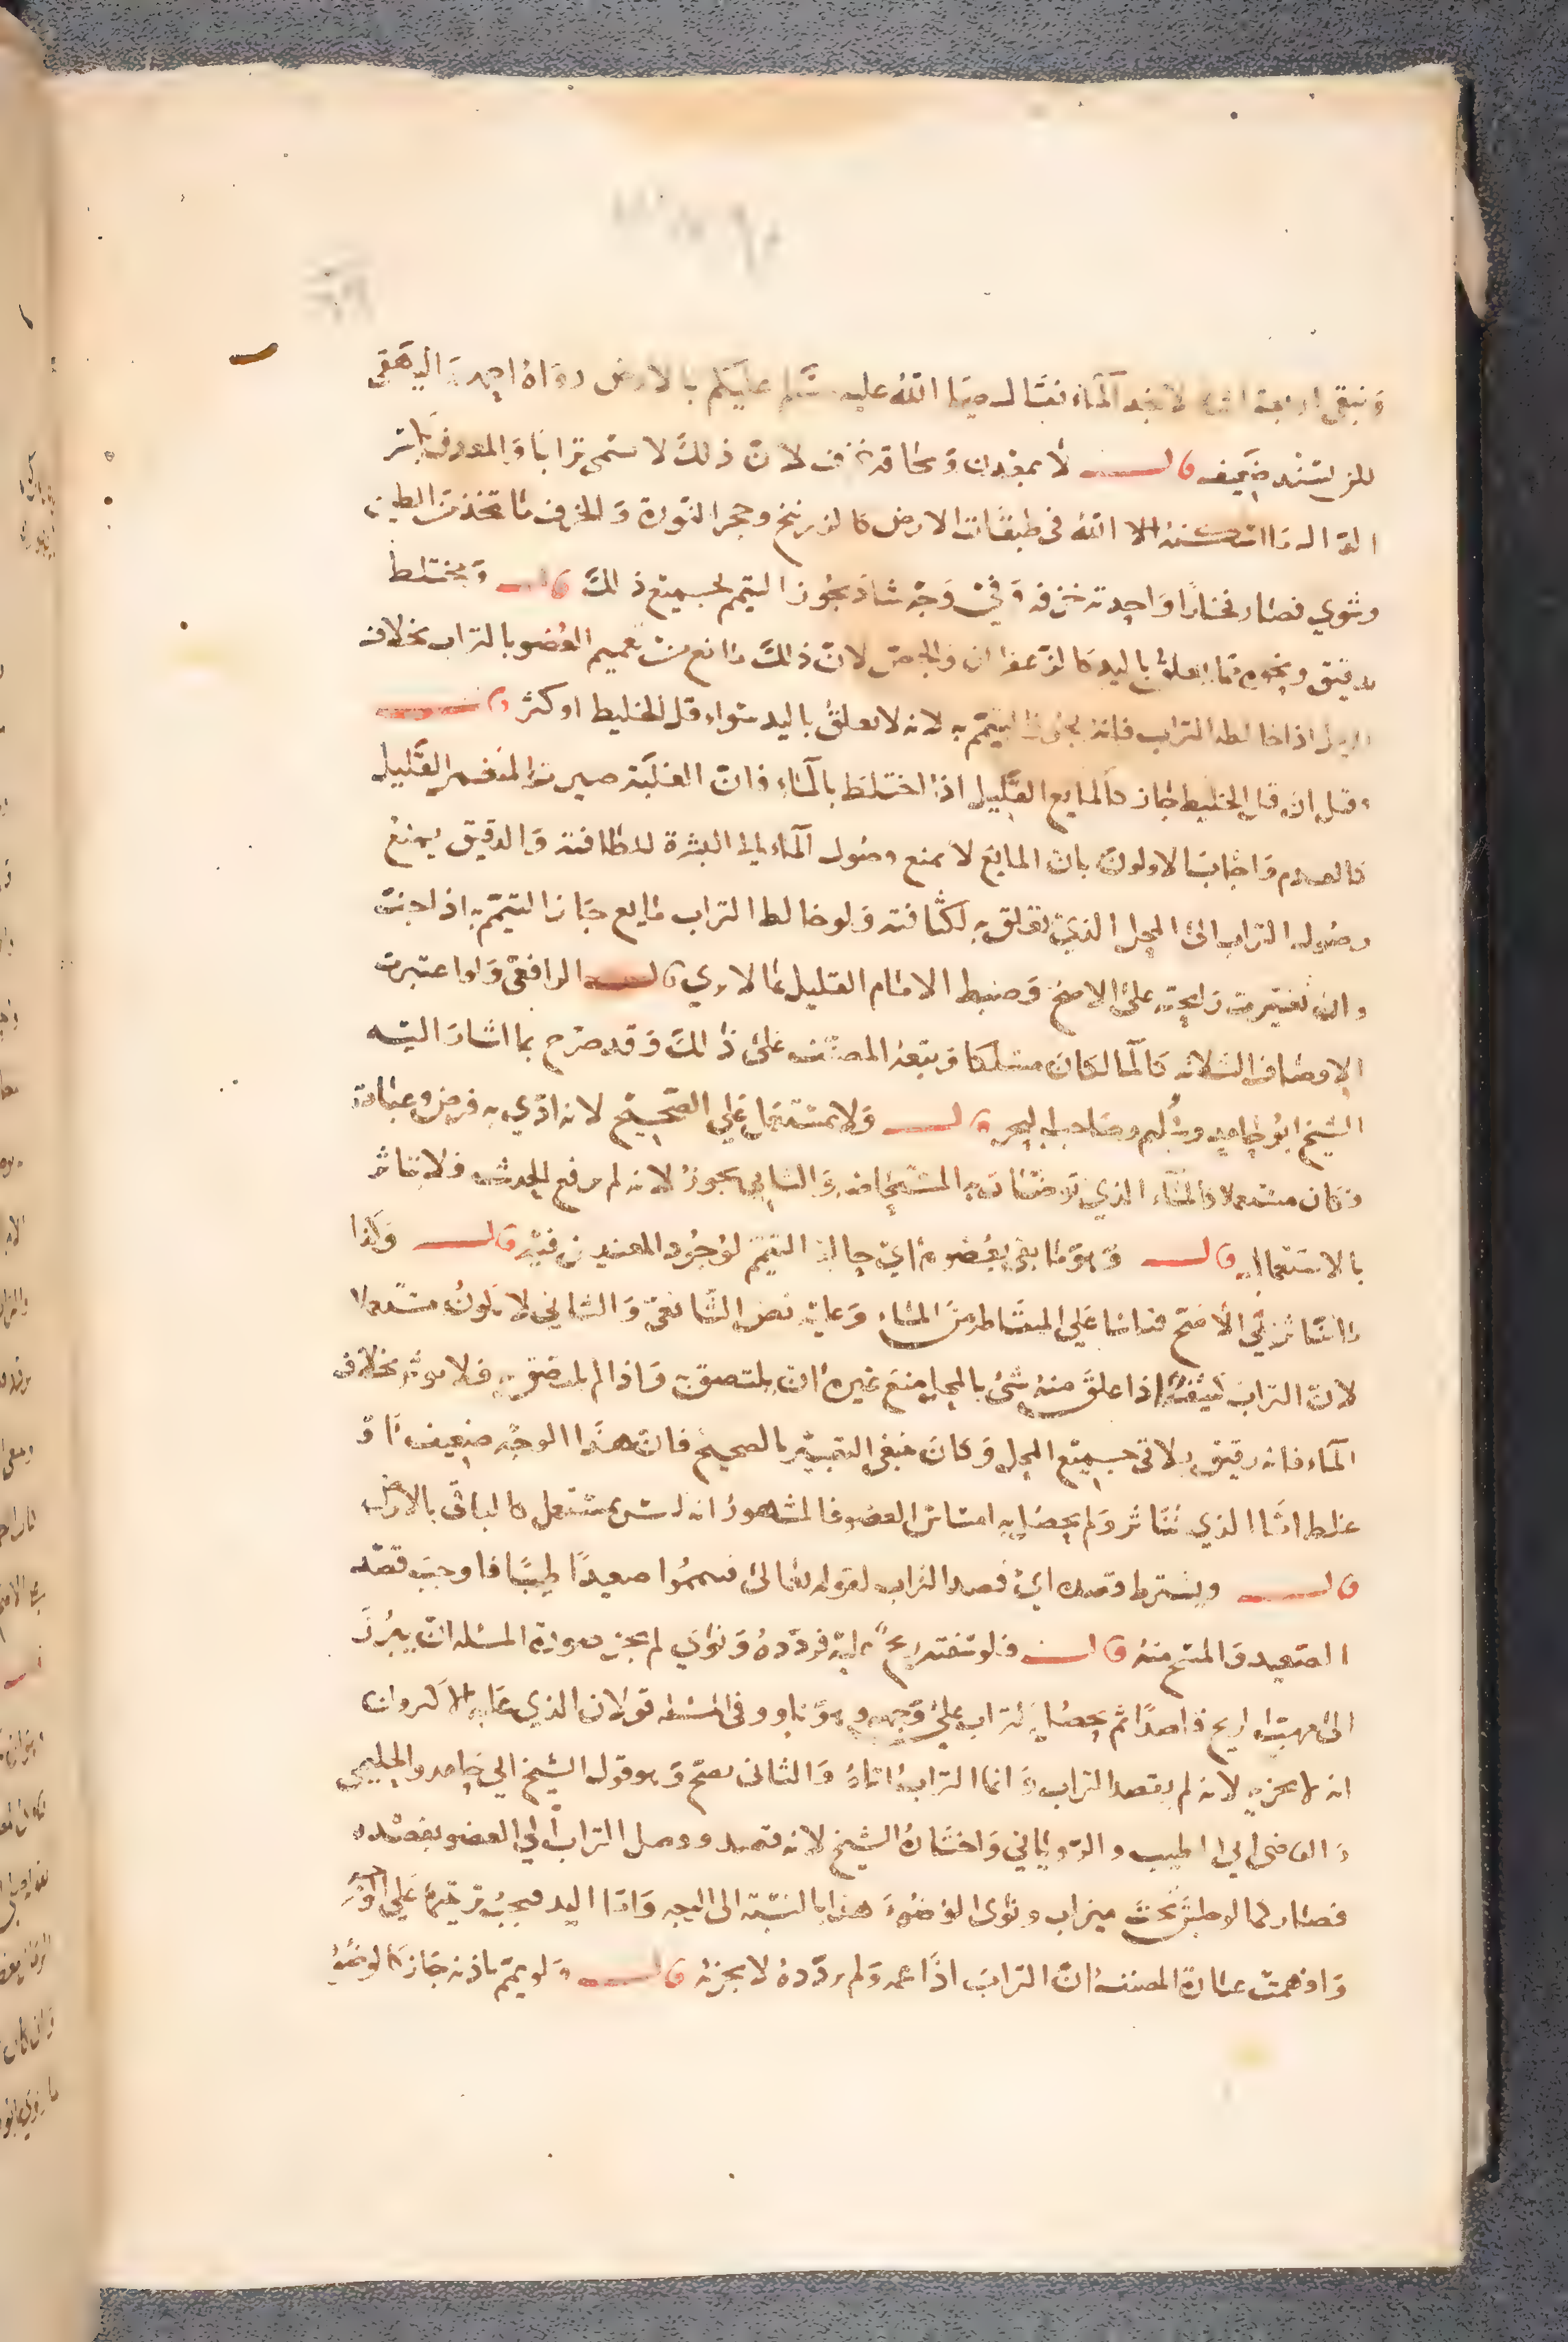 ونبقى اربعة اشهر لا نجد الماء فقال صلى الله عليه وسلم عليكم بالارض رواه احمد والبيهقي
لكن بسند ضعيف قال لا بمعدن وسحاقة خزف لان ذلك لا يسمى ترابا والمعدن
الله في طبقات الارض كالزرنيخ وحجر النورة والخزف ما يتخذ من الطين
وشوي فصار فخارا واحدته خزفه وفي وجه شاذ يجوز التيمم بجميع ذلك قال ومختلط
بدقيق ونحوه مما يعلق باليد كالزعفران والجص لان ذلك مانع من تعميم العضو بالتراب بخلاف
الرمل اذا خالطه التراب فانه يجوز التيمم به لانه لا يعلق باليد سواء قل الخليط او كثر قال
وقيل ان قل الخليط جاز كالمايع القليل اذا اختلط بالماء فان الغلبة صيرت المنغمر القليل
كالعدم واجاب الاولون بان المايع لا يمنع وصول الماء الى البشرة للطافته والدقيق يمنع
وصول التراب الى المحل الذي تعلق به لكثافته ولو خالط التراب مايع جاز التيمم به اذا جف
وان تغيرت رايحته على الاصح وضبط الامام القليل بما لا يرى قال الرافعي ولو اعتبرت
الاوصاف الثلاثة كالماء لكان مسلكا وتبعه المصنف على ذلك وقد صرح بما اشار اليه
الشيخ ابو حامد وسليم وصاحب البحر قال ولا بمستعمل على الصحيح لانه ادي به فرض وعبادة
فكان مستعملا كالماء الذي توضات به المستحاضة والثاني يجوز لانه لم يرفع الحدث فلا يتاثر
بالاستعمال قال وهو ما بقي بعضوه اي حالة التيمم لوجود المعنيين فيه قال وكذا
ما تناثر في الاصح قياسا على المتقاطر من الماء وعليه نص الشافعي والثاني لا يكون مستعملا
لان التراب كثيف اذا علق منه شيء بالمحل منع غيره ان يلتصق به فاذا لم يلتصق به فلا يوثر بخلاف
الماء فانه رقيق يلاقي جميع المحل وكان ينبغي التعبير بالصحيح فان هذا الوجه ضعيف او
غلط اما الذي تناثر ولم يحصل به امساس العضو فالمشهور انه ليس بمستعمل كالباقي بالارض
قال ويشترط قصده اي قصد التراب لقوله تعالى فتيمموا صعيدا طيبا فاوجب قصد
الصعيد والمسح منه قال فلو سفته ريح عليه فردده ونوى لم يجز صورة المسئلة ان يبرز
الى مهب الريح قاصدا ثم يحصل التراب على وجهه وهو ناو وفي المسئلة قولان الذي عليه الاكثرون
انه لا يجزيه لانه لم يقصد التراب وانما التراب اتاه والثاني يصح وهو قول الشيخ ابي حامد والحليمي
والقاضي ابي الطيب والروياني واختاره الشيخ لانه قصد ووصل التراب الى العضو بقصده
فصار كما لو جلس تحت ميزاب ونوى الوضوء هذا بالنسبة الى الوجه واما اليد فيجب ترتيبها على الوجه
وافهمت عبارة المصنف ان التراب اذا عمه ولم يردده لا يجزيه قال ولو يمم باذنه جاز كالوضوء